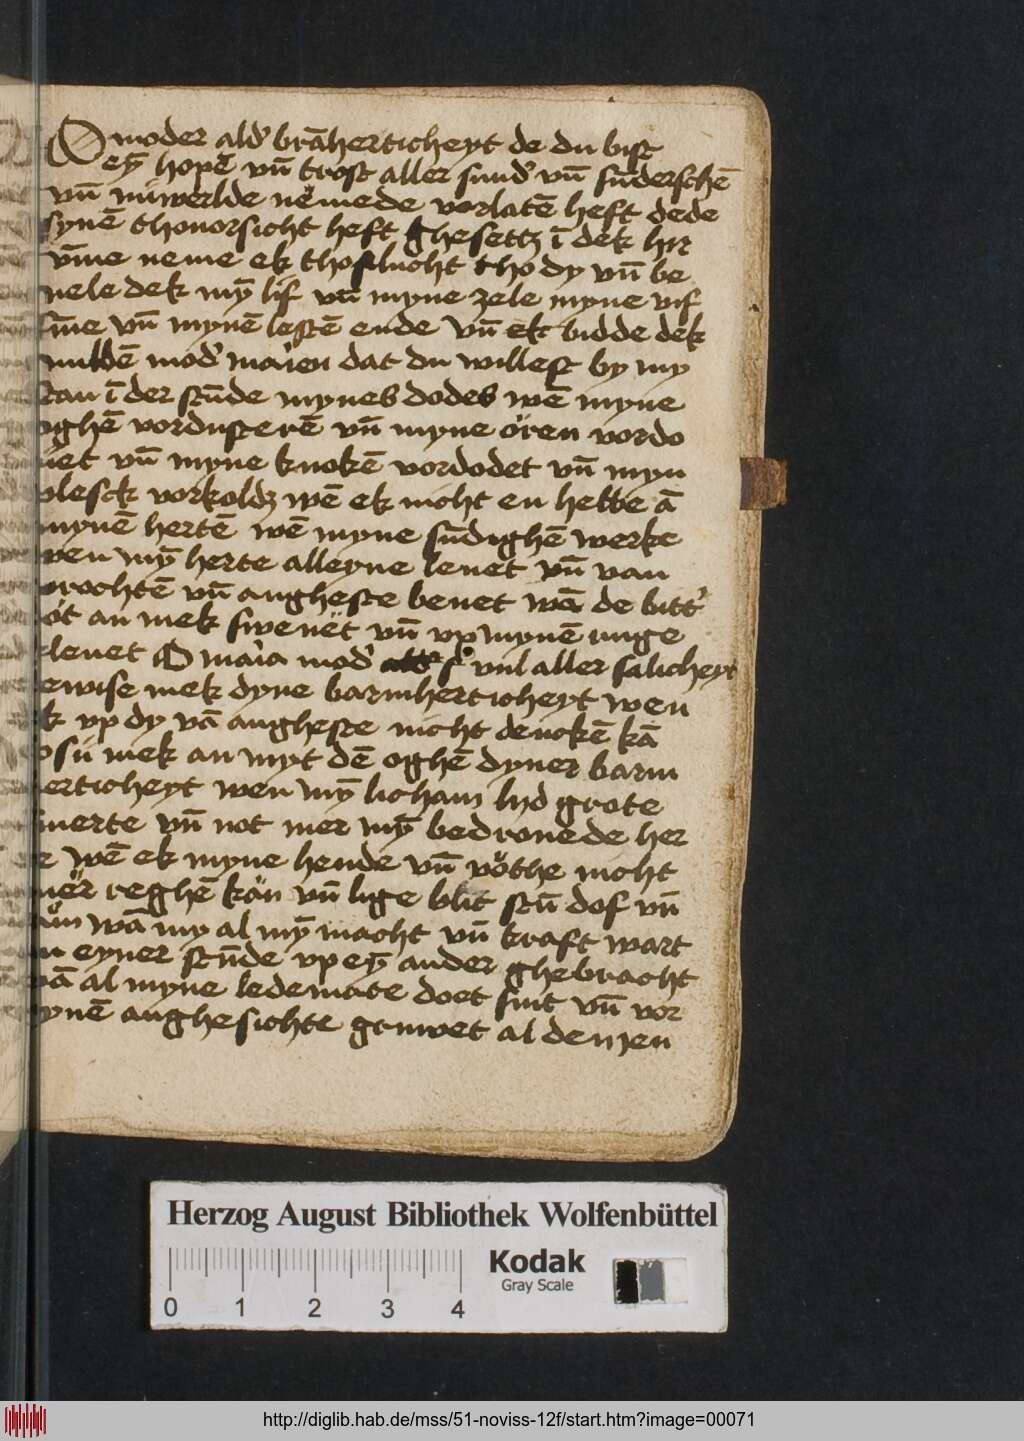 O moder ald' brāherticheyt de du bist
eȳ hopē vn̄ trost aller sund' vn̄ sūderschē
vn̄ nuwerlde nēmede vorlatē heft dede
synē thouorsicht heft ghesettz ī dek hir
v̄me neme ek thoflucht tho dy vn̄ be
uele dek mȳ lif vn̄ myne zele myne vif
s̄ine vn̄ mynē lestē ende vn̄ ek bidde dek
mildē mod' marien dat du willest by my
stan ī der stūde mynes dodes wē myne
oghē vordusterē vn̄ myne oren vordo
uet vn̄ myne knokē vordodet vn̄ myn
vlesck vorkoldz wē ek nicht en hebbe ā
mynē hertē wē myne sūdighē werke
wen mȳ herte alleyne leuet vn̄ van
vrochtē vn̄ angheste beuet wā de bitt'
dot an mek sweuet vn̄ vp mynē
leuet O maria mod' vul aller salicheyt
bewise mek dyne barmherticheyt wen
ek vp dy vā angheste nicht denckē kā
so su mek an myt dē oghē dyner barm
herticheyt wen mȳ licham lyd grote
smerte vn̄ not mer mȳ bedrouede her
te wē ek myne hende vn̄ vothe nicht
mer reghē kan vn̄ lige blit stū dof vn̄
wā my al mȳ macht vn̄ kraft wart
in eyner stūde vp eȳ ander ghebracht
wā al myne ledemate doet sint vn̄ vor
mynē anghesichte gruwet al denjen
Herzog August Bibliothek Wolfenbüttel
Kodak
Gray Scale
0 1 2 3 4
http://diglib.hab.de/mss/51-noviss-12f/start.htm?image=00071